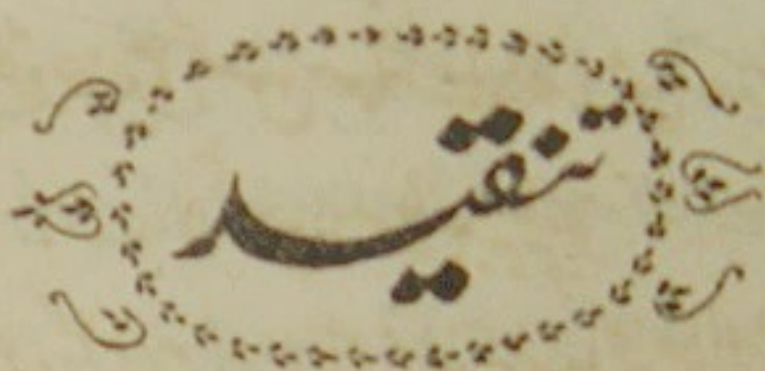 تنقید